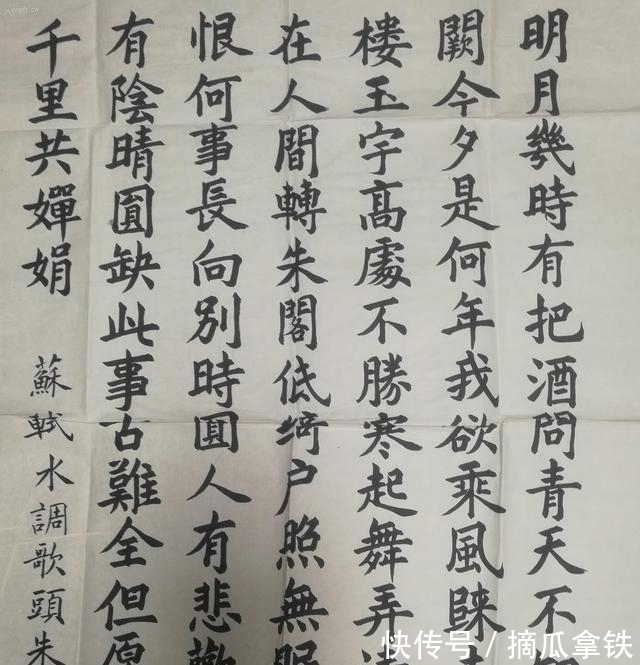 明月幾時有把酒問青天不
闕今夕是何年我欲乘風歸
楼玉宇髙處不勝寒起舞弄
在人間轉朱閣低绮户照無眠
恨何事長向别時圓人有悲歡
有陰晴圓缺此事古難全但
千里共嬋娟
蘇軾水調歌頭朱
快传号／摘瓜拿铁